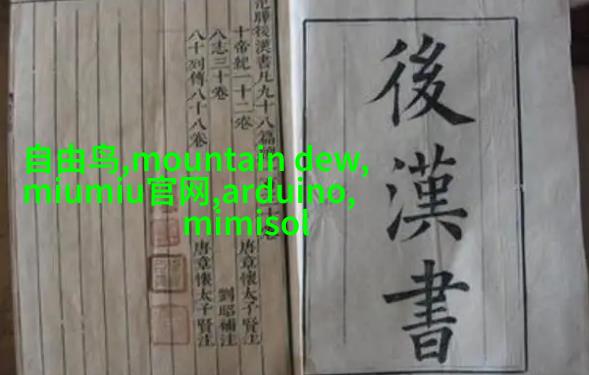 後漢書
范曄後漢書凡九十八篇
十帝紀一十二卷 唐章懷太子賢注
八志三十卷 劉昭補注
八十列傳八十八卷 唐章懷太子賢注
自由鸟,mountain dew,
miumiu官网,arduino,
mimisol